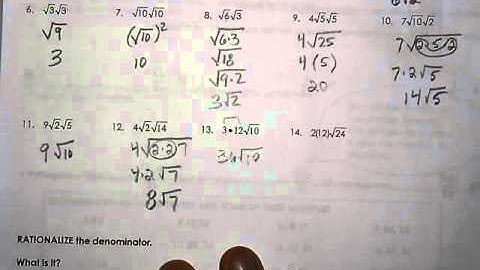 6. √3√3
√9
3
7. √10√10
(√10)²
10
8. √6√3
√6·3
√18
√9·2
3√2
9. 4√5√5
4√25
4(5)
20
10. 7√10√2
7√2·5·2
7·2√5
14√5
11. 9√2√5
9√10
12. 4√2√14
4√2·2·7
4·2√7
8√7
13. 3•12√10
36√10
14. 2(12)√24
RATIONALIZE the denominator.
What is it?